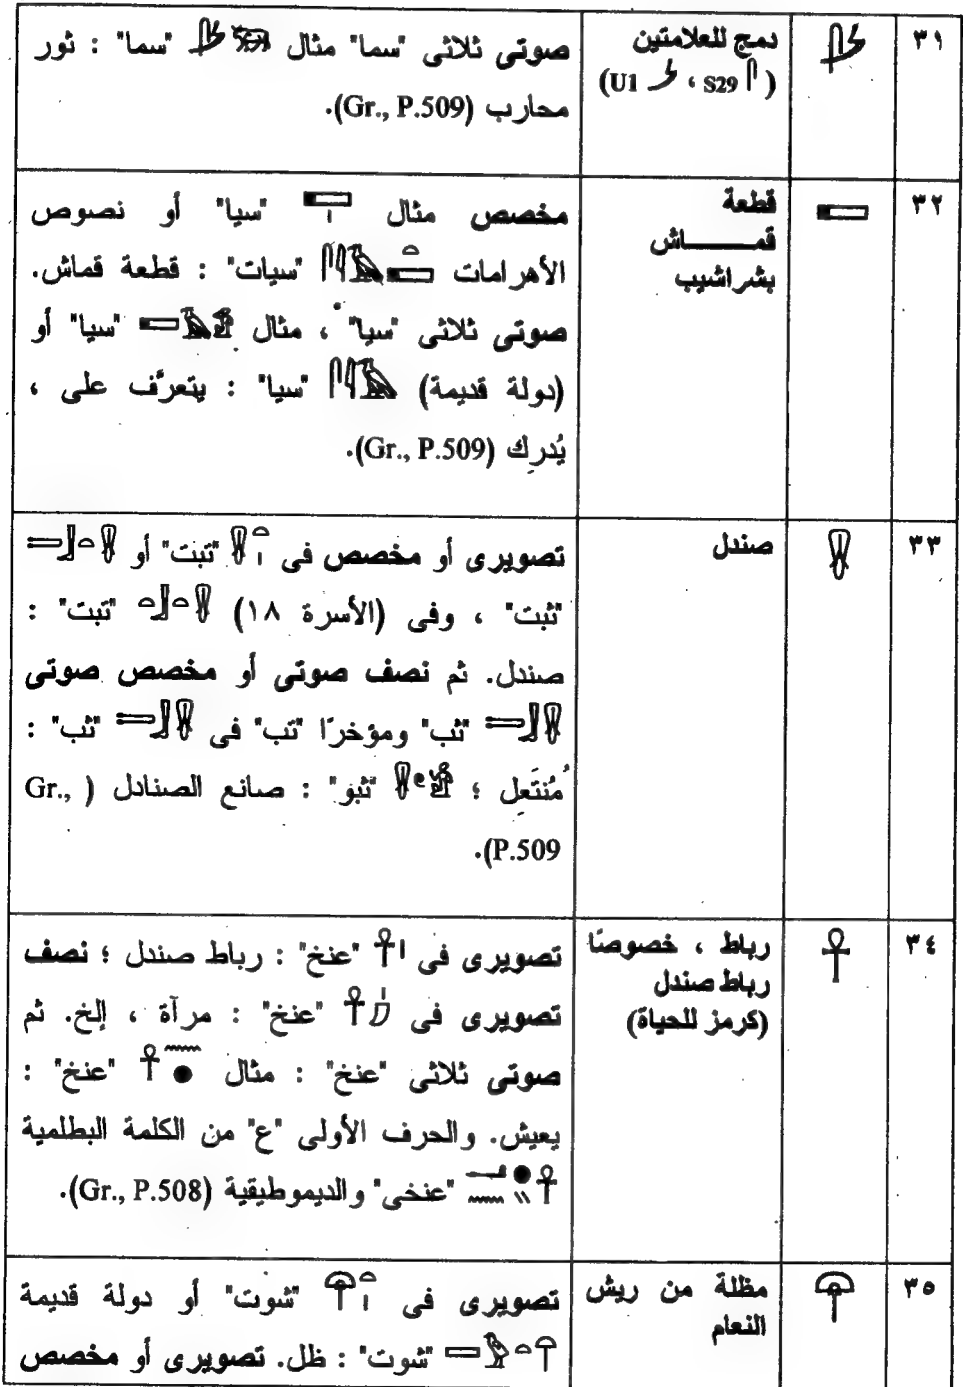 ٣١ دمج للعلامتين صوتى ثلاثى "سما" مثال "سما" : ثور
(S29 ، U1) محارب (Gr., P.509).
٣٢ قطعة مخصص مثال "سيا" أو نصوص
قمــــاش الأهرامات "سيات" : قطعة قماش.
بشراشيب صوتى ثلاثى "سيا" ، مثال "سيا" أو
(دولة قديمة) "سيا" : يتعرَّف على ،
يُدرِك (Gr., P.509).
٣٣ صندل تصويرى أو مخصص فى "تبت" أو
"ثبت" ، وفى (الأسرة ١٨) "تبت" :
صندل. ثم نصف صوتى أو مخصص صوتى
"ثب" ومؤخرًا "تب" فى "ثب" :
مُنتَعِل ؛ "ثبو" : صانع الصنادل (Gr.,
P.509).
٣٤ رباط ، خصوصًا تصويرى فى "عنخ" : رباط صندل ؛ نصف
رباط صندل تصويرى فى "عنخ" : مرآة ، إلخ. ثم
(كرمز للحياة) صوتى ثلاثى "عنخ" : مثال "عنخ" :
يعيش. والحرف الأولى "ع" من الكلمة البطلمية
"عنخى" والديموطيقية (Gr., P.508).
٣٥ مظلة من ريش تصويرى فى "شوت" أو دولة قديمة
النعام "شوت" : ظل. تصويرى أو مخصص